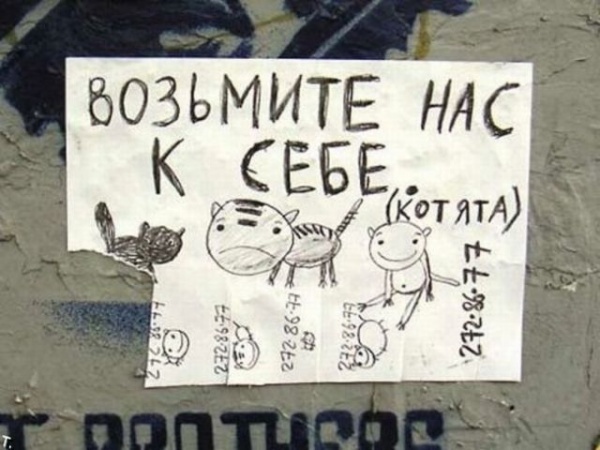 ВОЗЬМИТЕ НАС
К СЕБЕ.
(КОТЯТА)
272·86·77
272·86·77
272 86·77
272·86·77
272·86·77
T BROTHERS
T.